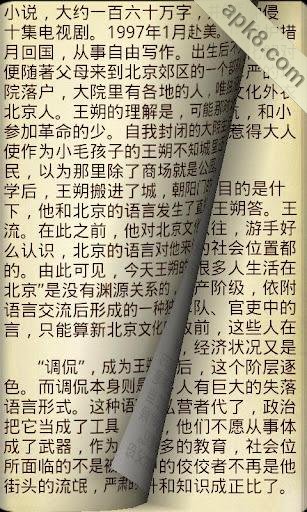 apk8.com
小说，大约一百六十万字，
十集电视剧。1997年1月赴美。
月回国，从事自由写作。出生后不
便随著父母来到北京郊区的一个部
院落户，大院里有各地的人，唯
北京人。王朔的理解是，可能那
参加革命的少。自我封闭的大院
使作为小毛孩子的王朔不知城里
民，以为那里除了商场就是公园
学后，王朔搬进了城，朝阳门 目的是什
下，他和北京的语言发生了直 王朔答。王
流。在此之前，他对北京文 往，游手好
么认识，北京的语言对他来 的社会位置都
的。由此可见，今天王朔的 很多人生活在
北京”是没有渊源关系的， 产阶级，依附
语言交流后形成的一种独 军队、官吏中的
言，只能算新北京文化 放前，这些人在
，经济状况又是
“调侃”，成为王朔 后，这个阶层逐
色。而调侃本身则是 人有巨大的失落
语言形式。这种语 私营者代了，政治
把它当成了工具， ，他们不愿从事体
成为了武器，作为 多的教育，社会位
所面临的不是被 中的佼佼者不再是他
街头的流氓，严肃的 计和知识成正比了。